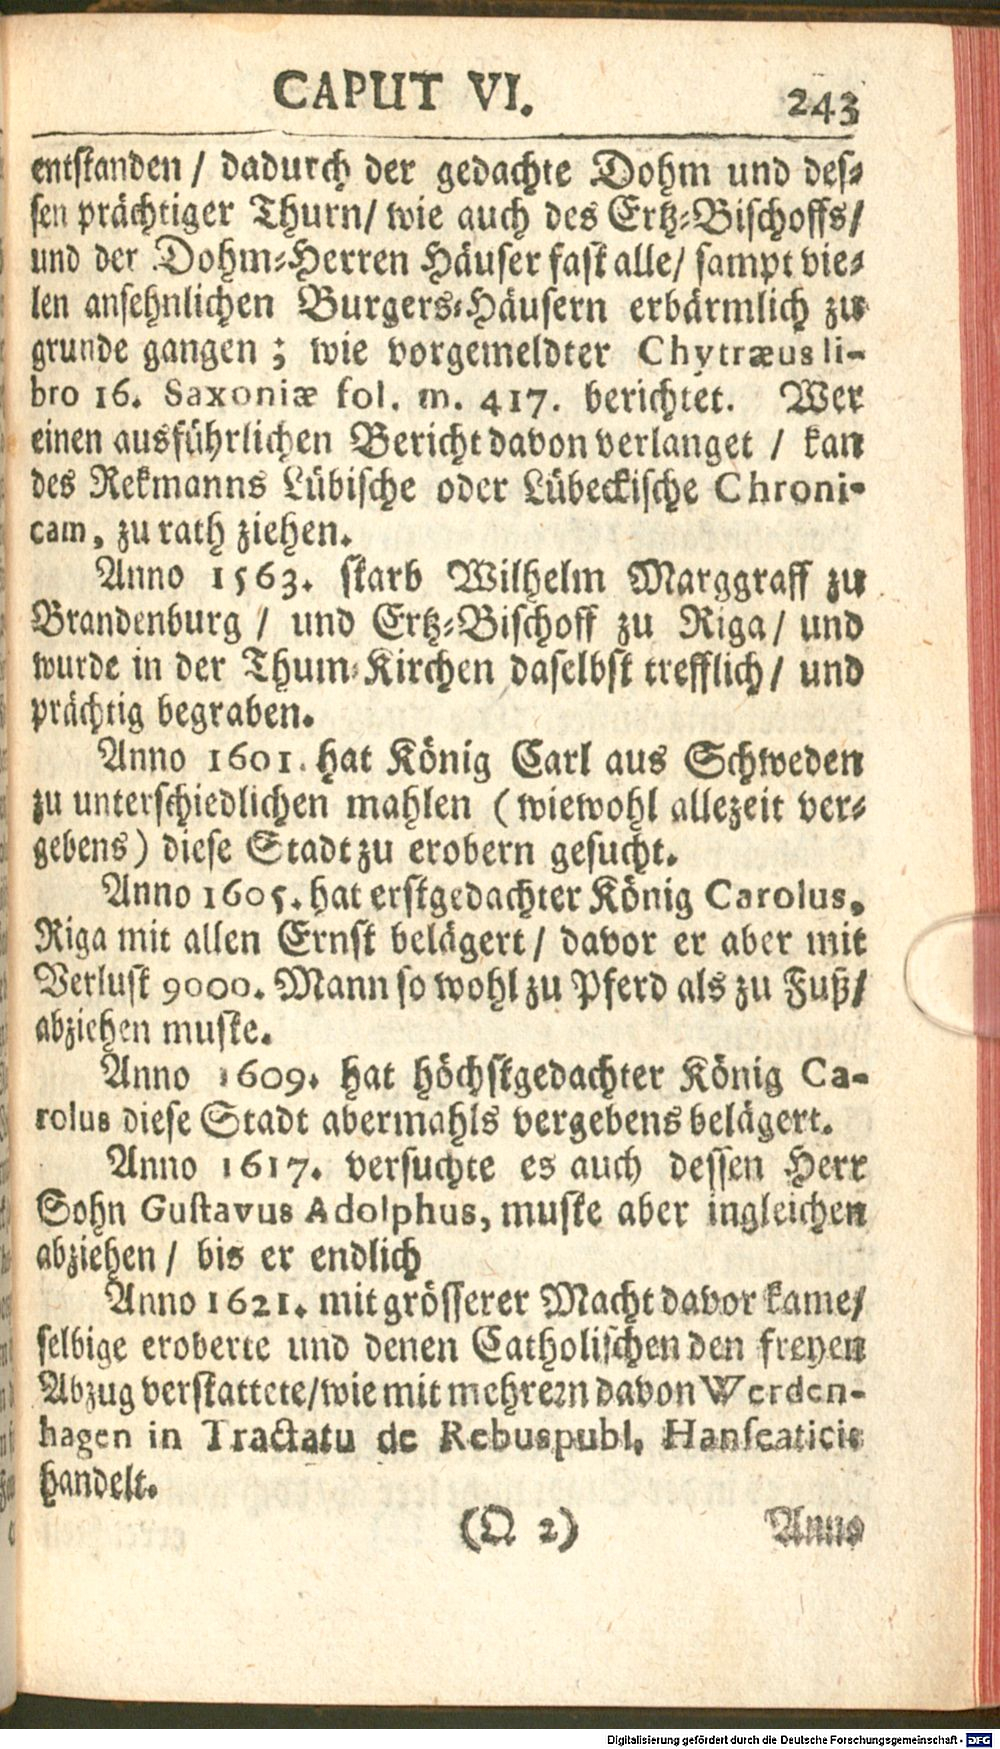 CAPUT VI. 243
entstanden / dadurch der gedachte Dohm und des-
sen prächtiger Thurn/ wie auch des Ertz-Bischoffs/
und der Dohm-Herren Häuser fast alle/ sampt vie-
len ansehnlichen Burgers-Häusern erbärmlich zu
grunde gangen ; wie vorgemeldter Chytræus li-
bro 16. Saxoniæ fol. m. 417. berichtet. Wer
einen ausführlichen Bericht davon verlanget / kan
des Rekmanns Lübische oder Lübeckische Chroni-
cam, zu rath ziehen.
Anno 1563. starb Wilhelm Marggraff zu
Brandenburg / und Ertz-Bischoff zu Riga/ und
wurde in der Thum-Kirchen daselbst trefflich/ und
prächtig begraben.
Anno 1601. hat König Carl aus Schweden
zu unterschiedlichen mahlen ( wiewohl allezeit ver-
gebens ) diese Stadt zu erobern gesucht.
Anno 1605. hat erstgedachter König Carolus,
Riga mit allen Ernst belägert / davor er aber mit
Verlust 9000. Mann so wohl zu Pferd als zu Fuß/
abziehen muste.
Anno 1609. hat höchstgedachter König Ca-
rolus diese Stadt abermahls vergebens belägert.
Anno 1617. versuchte es auch dessen Herr
Sohn Gustavus Adolphus, muste aber ingleichen
abziehen / bis er endlich
Anno 1621. mit grösserer Macht davor kame/
selbige eroberte und denen Catholischen den freyen
Abzug verstattete/ wie mit mehrern davon Werden-
hagen in Tractatu de Rebuspubl. Hanseaticis
handelt.
(Q 2) Anno
Digitalisierung gefördert durch die Deutsche Forschungsgemeinschaft - DFG